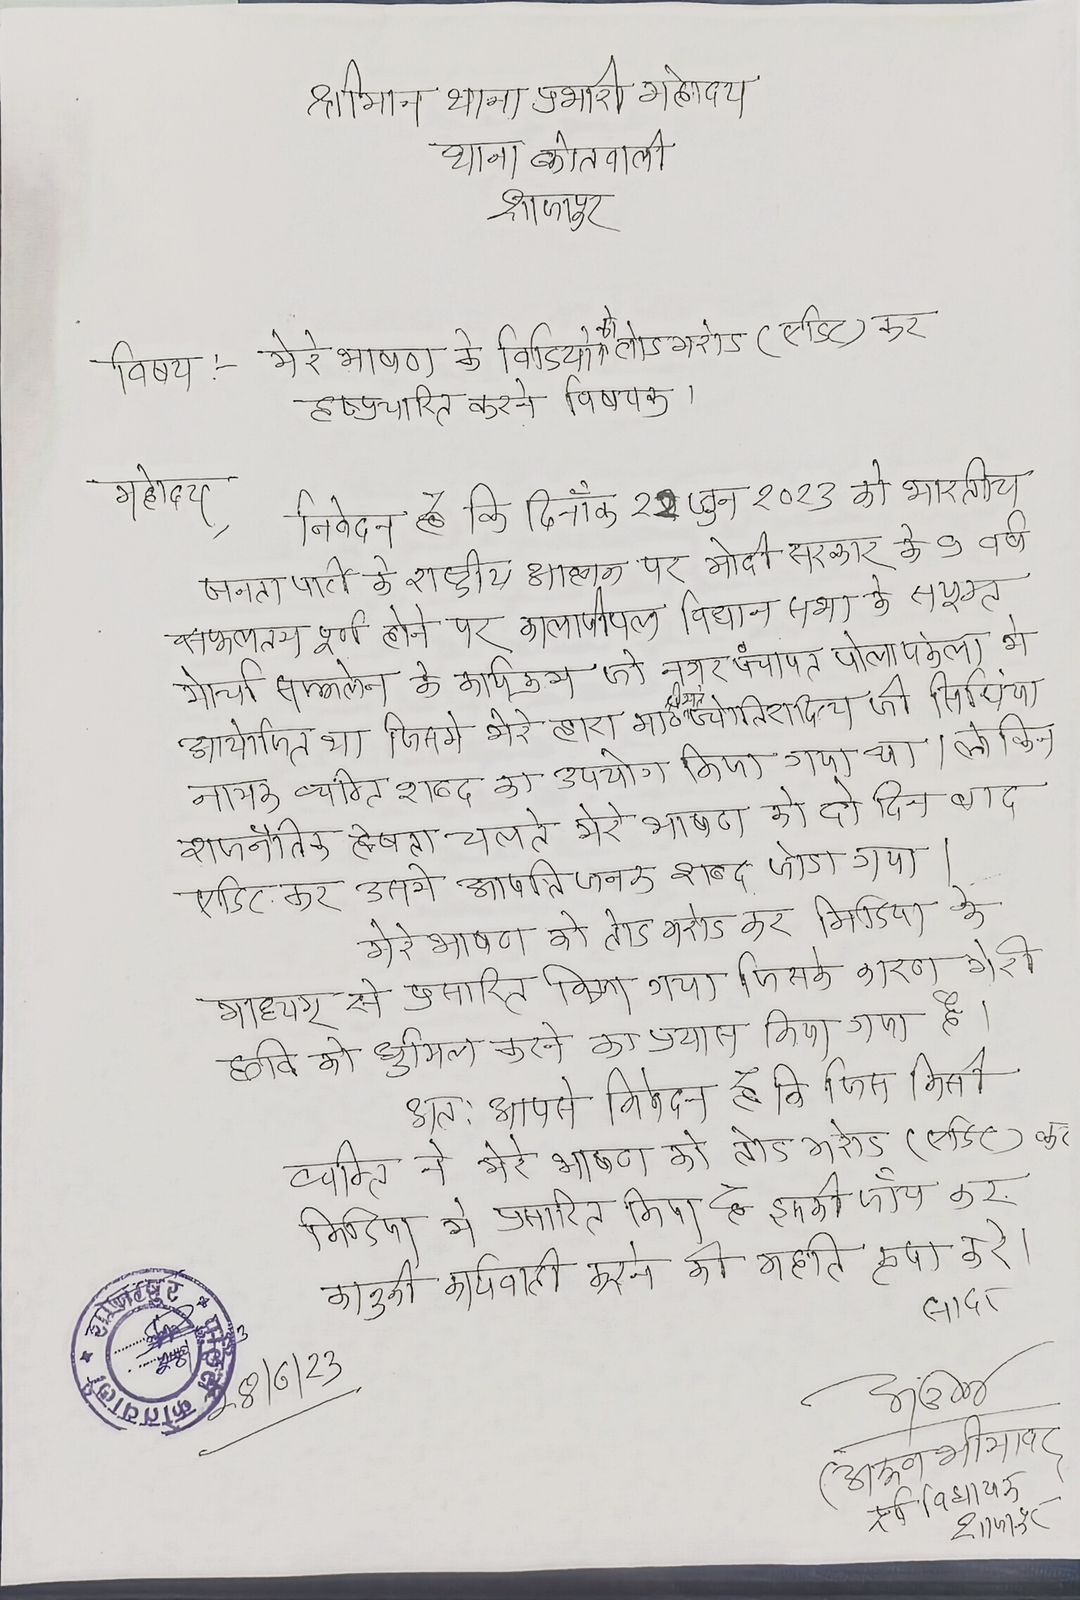 श्रीमान थाना प्रभारी महोदय
थाना कोतवाली
शाजापुर
विषय :- मेरे भाषण के विडियो को तोडमरोड (एडिट) कर
दुष्प्रचारित करने विषयक।
महोदय,
निवेदन है कि दिनाँक 22 जुन 2023 को भारतीय
जनता पार्टी के राष्ट्रीय आह्वान पर मोदी सरकार के 9 वर्ष
सफलतम पूर्ण होने पर कालापीपल विधान सभा के सयूक्त
मोर्चा सम्मलेन के कार्यक्रम जो नगर पंचायत पोलायकला मे
आयोजित था जिसमे मेरे द्वारा मा० श्रीमंत ज्योतिरादित्य जी सिधिंया
नामक व्यक्ति शब्द का उपयोग किया गया था। लेकिन
राजनैतिक द्वेषता चलते मेरे भाषण को दो दिन बाद
एडिट कर उसमे आपतिजनक शब्द जोडा गया।
मेरे भाषण को तोडमरोड कर मिडिया के
माध्यम से प्रसारित किया गया जिसके कारण मेरी
छवि को धुमिल करने का प्रयास किया गया है।
अत: आपसे निवेदन है कि जिस किसी
व्यक्ति ने मेरे भाषण को तोडमरोड (एडिट) कर
मिडिया मे प्रसारित किया है इसकी जाँच कर
कानुनी कार्यवाही करने की महति कृपा करे।
सादर
28/6/23
(अरूण भीमावद
पूर्व विधायक
शाजापुर
कोतवाली